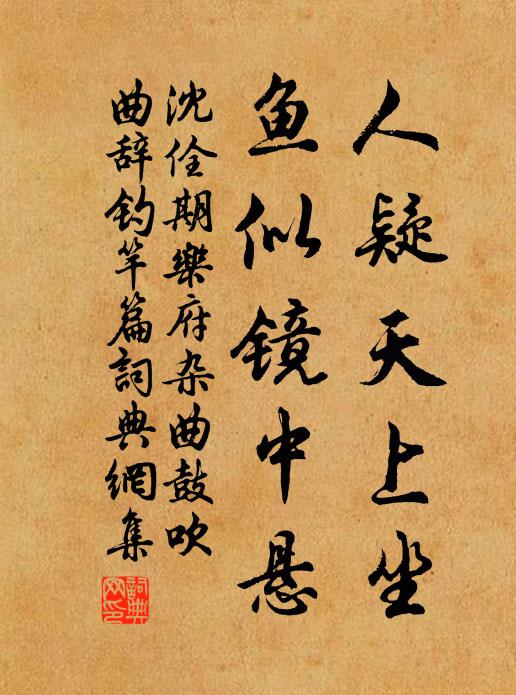 人疑天上坐
鱼似镜中悬
沈佺期樂府杂曲鼓吹
曲辞钓竿篇詞典網集
詞典
网印